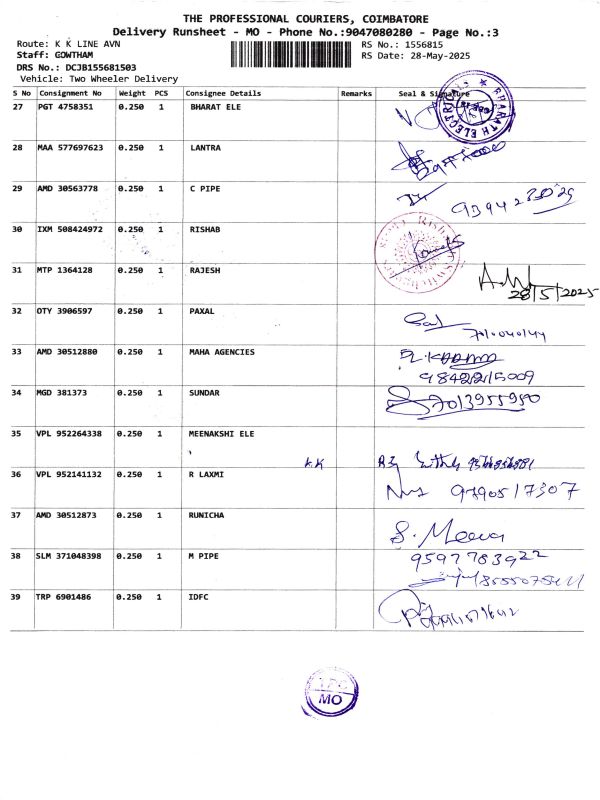 THE PROFESSIONAL COURIERS, COIMBATORE
Delivery Runsheet - MO - Phone No.:9047080280 - Page No.:3
Route: K K LINE AVN RS No.: 1556815
Staff: GOWTHAM RS Date: 28-May-2025
DRS No.: DCJB155681503
Vehicle: Two Wheeler Delivery
S No Consignment No Weight PCS Consignee Details Remarks Seal & Signature
27 PGT 4758351 0.250 1 BHARAT ELE
BHARATH ELECTRICALS
28 MAA 577697623 0.250 1 LANTRA
29 AMD 30563778 0.250 1 C PIPE
30 IXM 508424972 0.250 1 RISHAB
31 MTP 1364128 0.250 1 RAJESH
28/5/2025
32 OTY 3906597 0.250 1 PAXAL
33 AMD 30512880 0.250 1 MAHA AGENCIES
34 MGD 381373 0.250 1 SUNDAR
7013955950
35 VPL 952264338 0.250 1 MEENAKSHI ELE
K.K
36 VPL 952141132 0.250 1 R LAXMI
9790517307
37 AMD 30512873 0.250 1 RUNICHA
S. Meena
38 SLM 371048398 0.250 1 M PIPE
9597783922
39 TRP 6901486 0.250 1 IDFC
TPC
MO